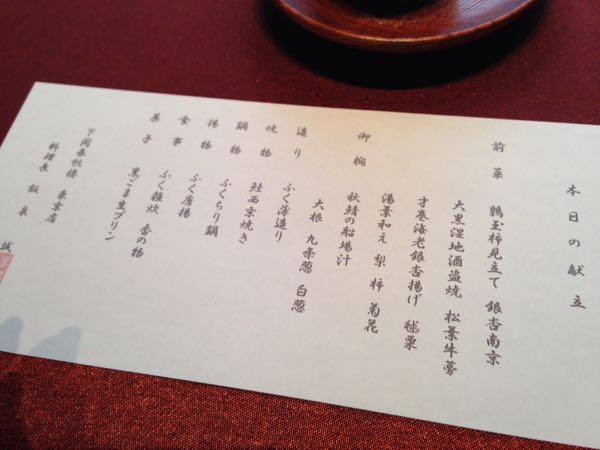 本日の献立
前菜 鶉玉柿見立て 銀杏南京
大黒湿地酒盗焼 松葉牛蒡
才巻海老銀杏揚げ 毬栗
湯葉和え 梨 柿 菊花
御椀 秋鯖の船場汁
大根 九条葱 白葱
造り ふく薄造り
焼物 鮭西京焼き
鍋物 ふくちり鍋
揚物 ふく唐揚
食事 ふく雑炊 香の物
菓子 黒ごま生プリン
下関春帆楼 東京店
料理長 飯泉 誠